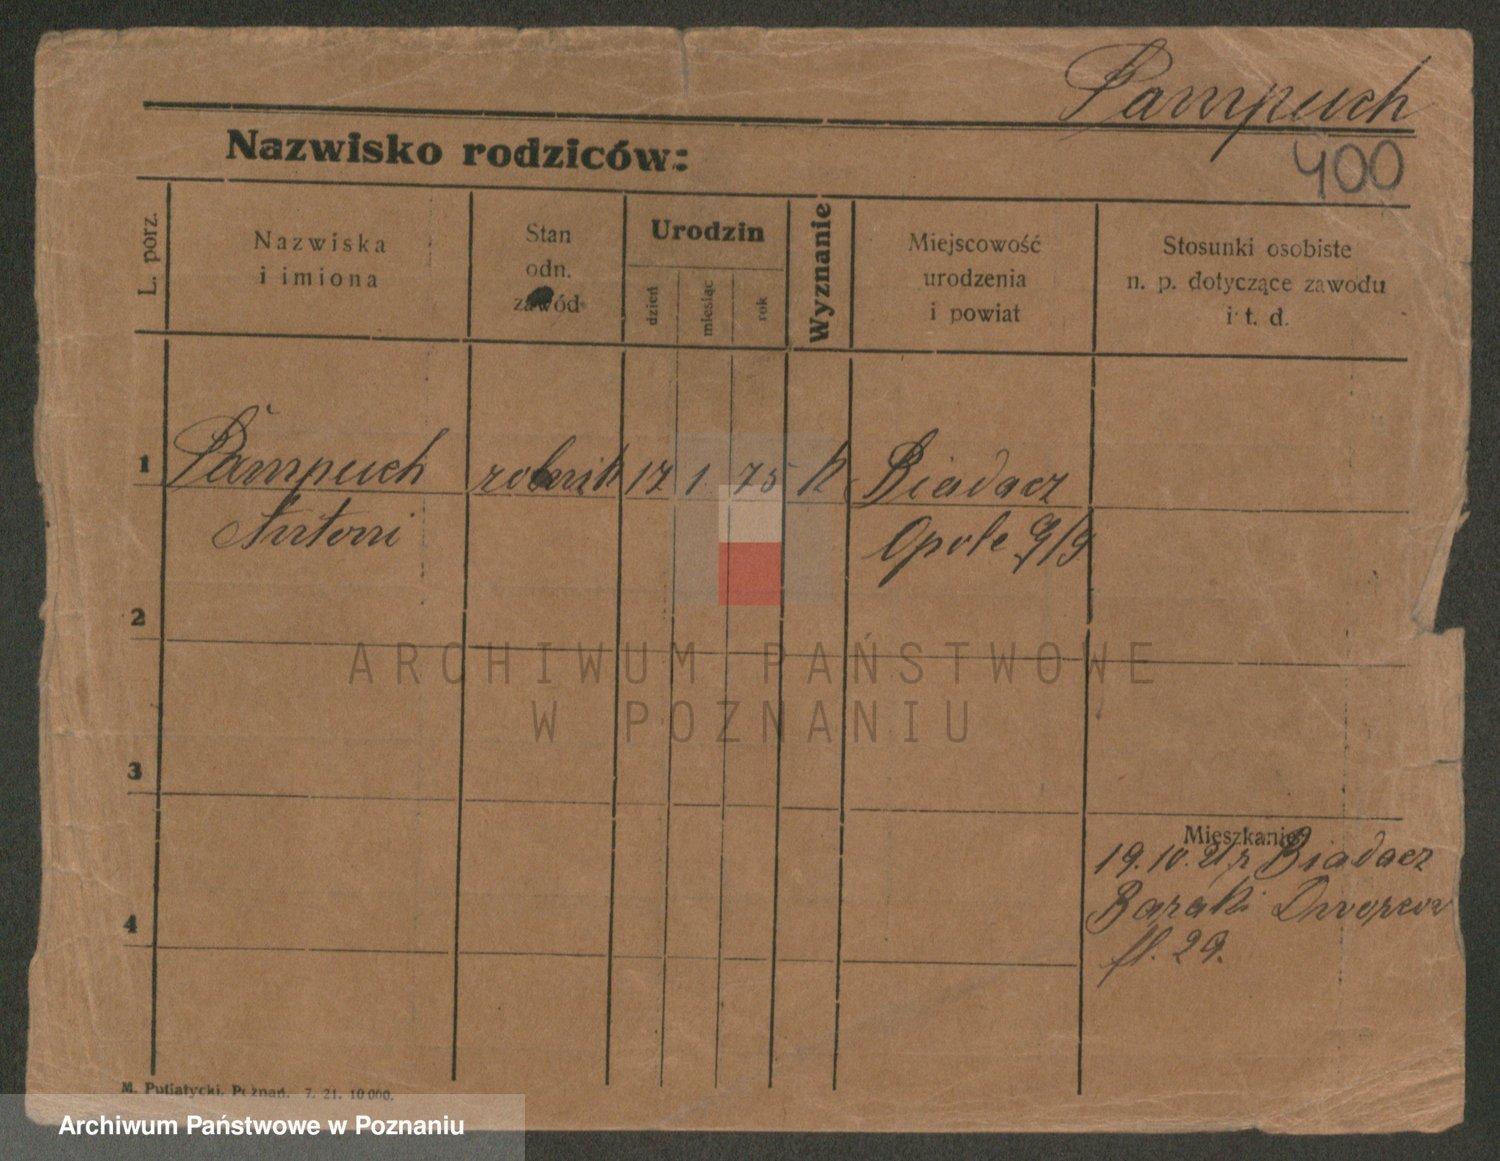 Pampuch
400
Nazwisko rodziców:
L. porz.
Nazwiska
i imiona
Stan
odn.
zawód
Urodzin
dzień
miesiąc
rok
Wyznanie
Miejscowość
urodzenia
i powiat
Stosunki osobiste
n. p. dotyczące zawodu
i t. d.
1 Pampuch robnik 17 1 75 k Biadacz
Antoni Opole G/S
2
3
4
Mieszkanie:
19.10.21 z Biadacz
Baraki
fl. 29.
M. Putiatycki, Poznań. 7. 21. 10 000.
ARCHIWUM PAŃSTWOWE
W POZNANIU
Archiwum Państwowe w Poznaniu